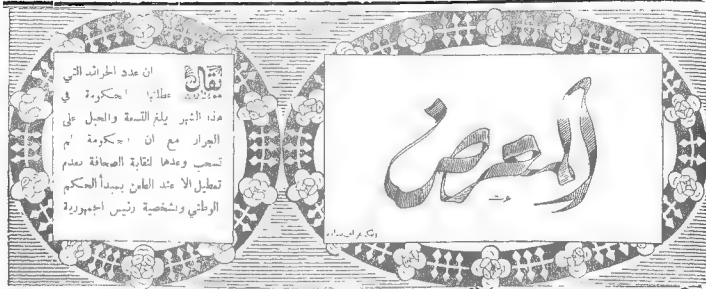 المعرض
يقال ان عدد الجرائد التي
عطلتها الحكومة في
هذا الشهر بلغ التسعة والحبل على
الجرار مع ان الحكومة لم
تسحب وعدها لنقابة الصحافة بعدم
تعطيل الا عند الطعن بمبدأ الحكم
الوطني وبشخصية رئيس الجمهورية